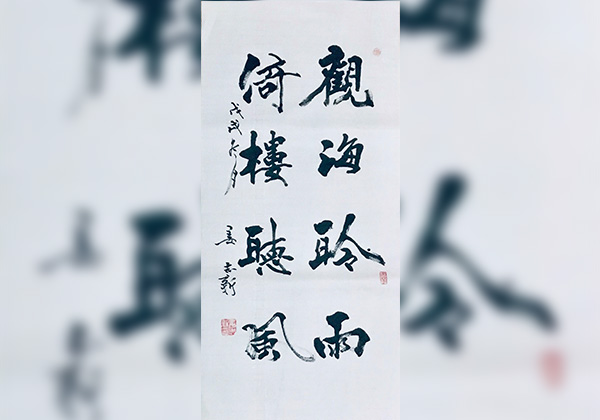 觀海聆雨
倚樓聽風
戊戌冬月
姜志新